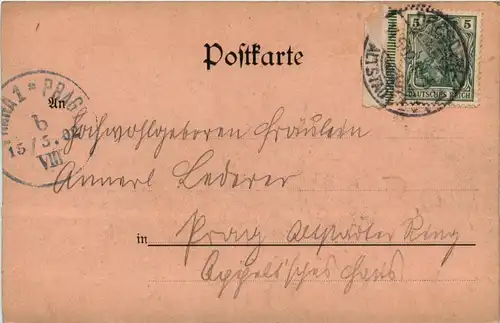 Postkarte
5 5
DEUTSCHES REICH
ALTST
PRAHA 1 * PRAG
b
15/5.02
VIII
An Hochwohlgeboren Fräulein
Annerl Lederer
in Prag Altstädter Ring
Appel'sches Haus